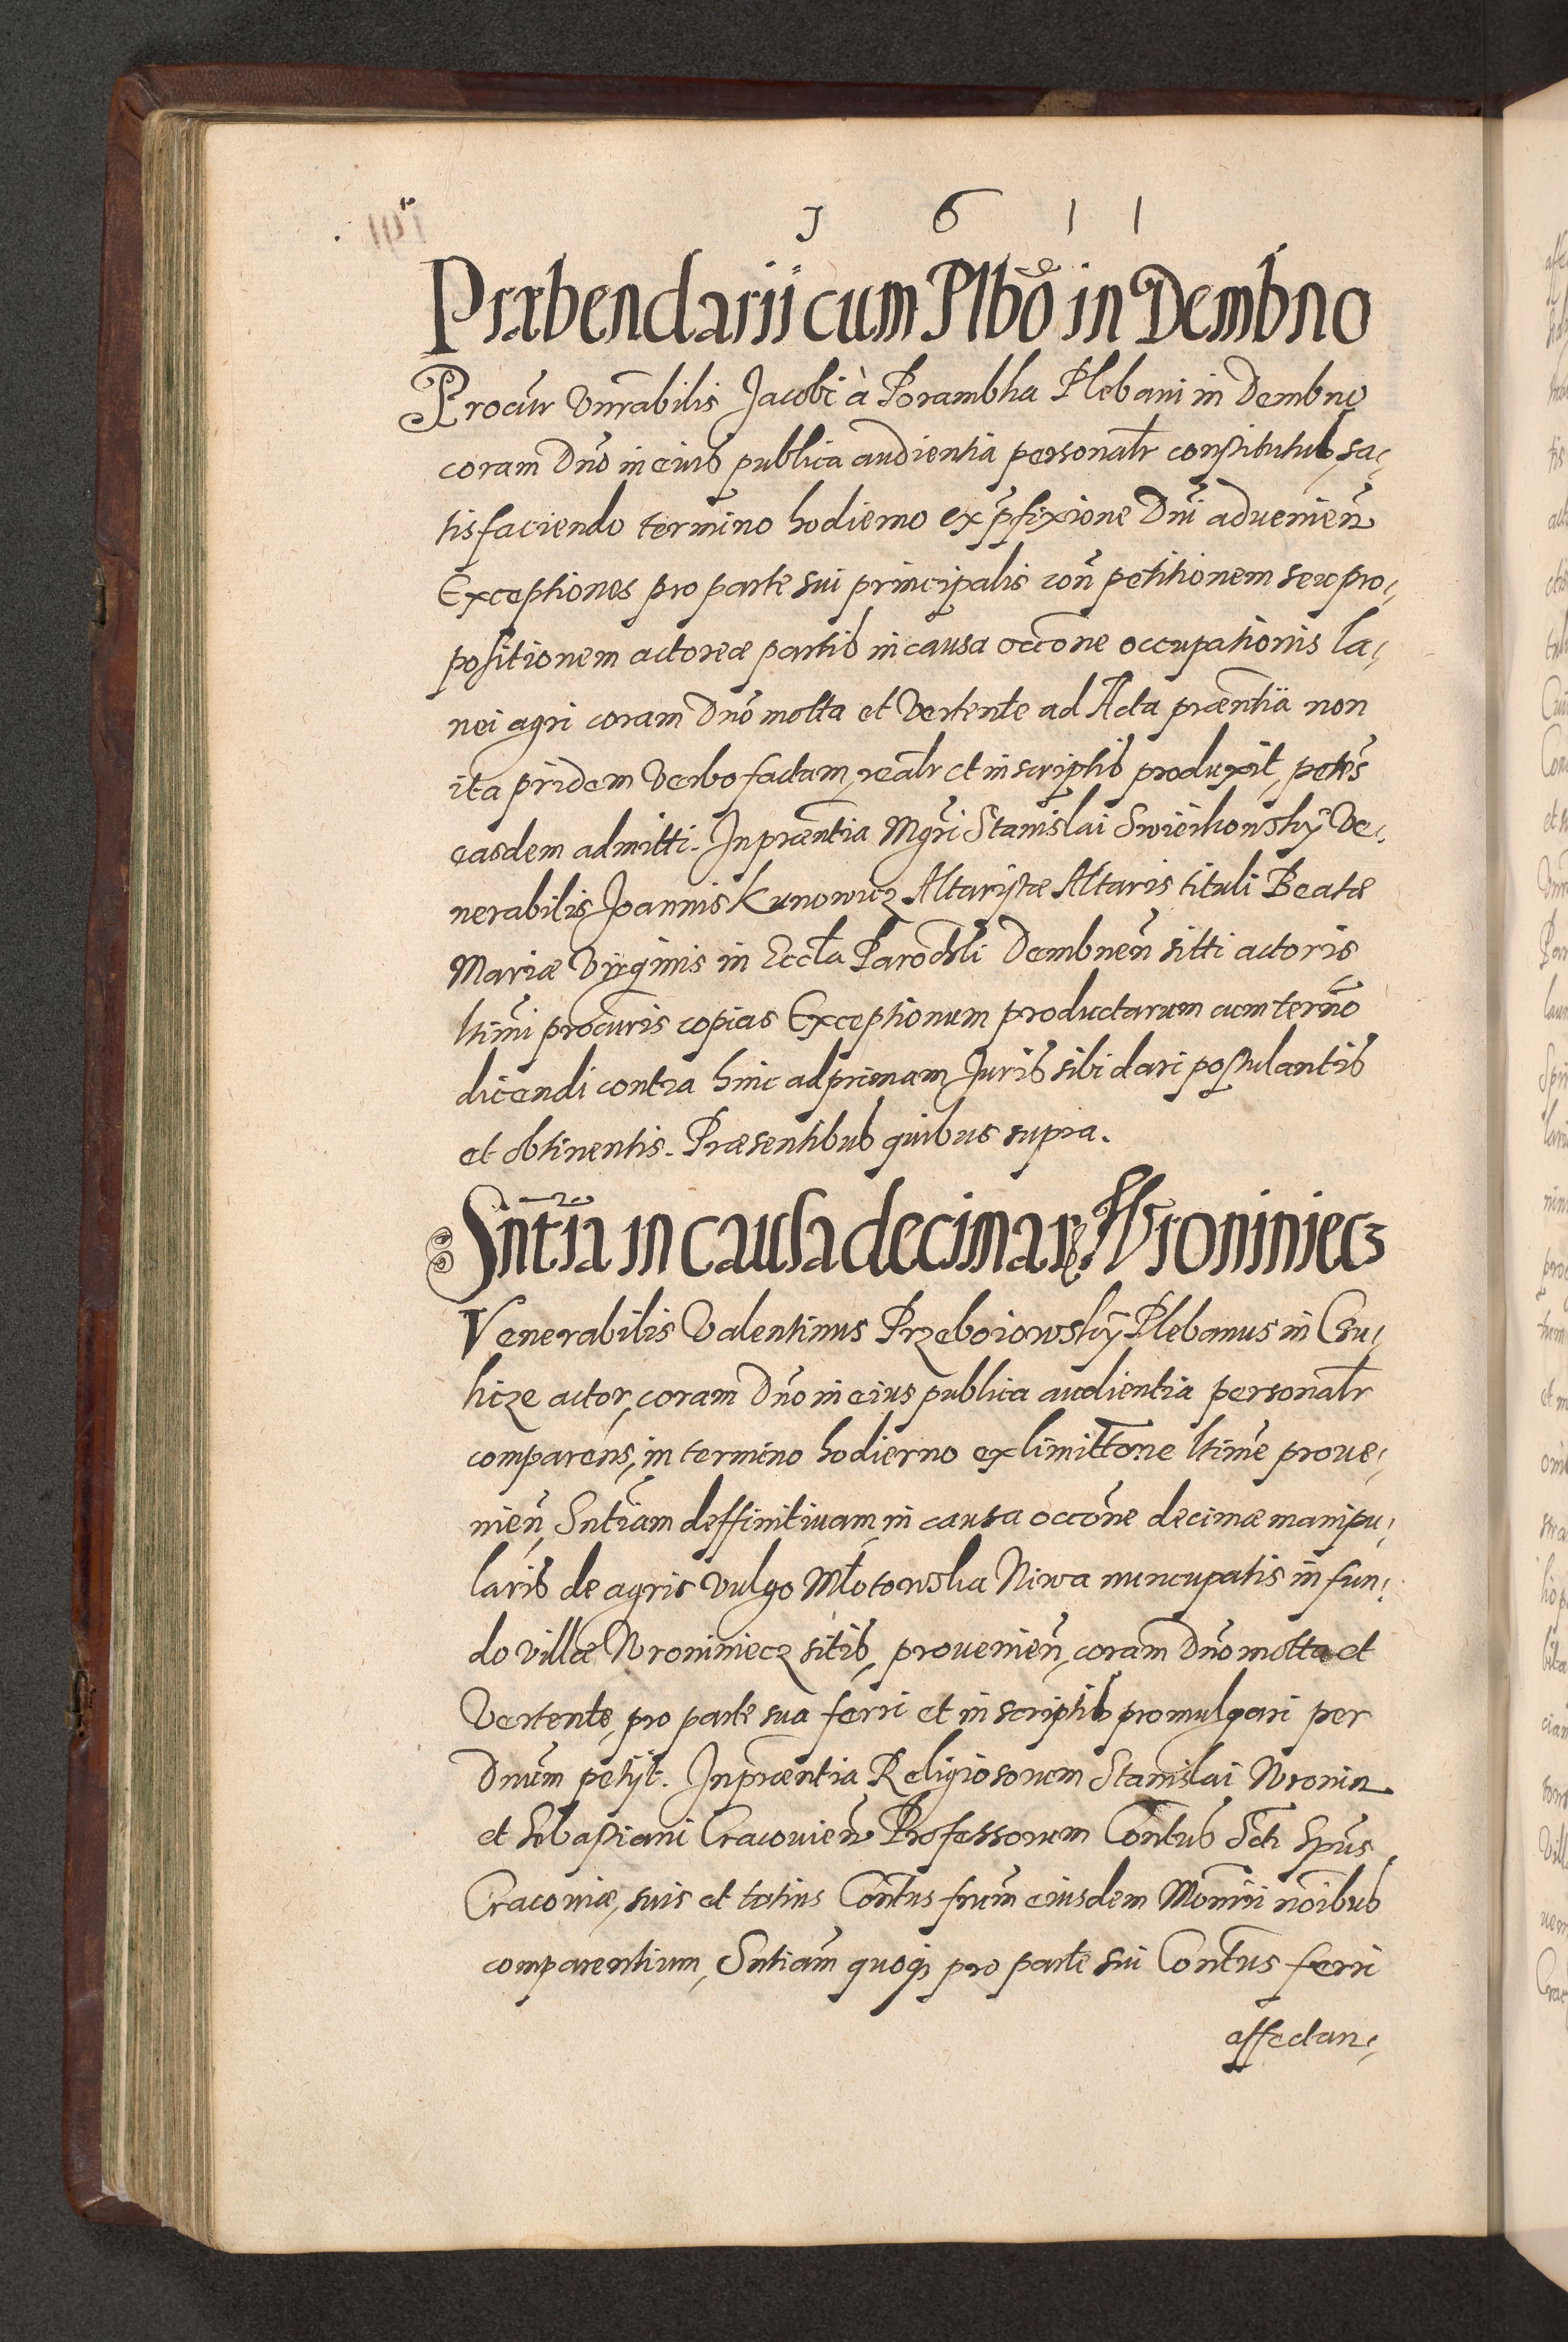 1 6 1 1
Præbendarii cum Plbō in Dembno
Procūr Vnrābilis Jacobi à Porambka Plebani in Dembno
coram Dnō in eius publica audientia personalr̄ constitutus, sa-
tisfaciendo termīno hodierno ex p̄fixione Dnī advenieñ
Exceptiones pro parte sui principalis coñ petitionem seu pro-
positionem actoreæ partis in causa occōne occupationis la-
nei agri coram Dnō motta et Vertente ad Acta præntiā non
ita pridem Verbo factam, realr̄ et in scriptis produxit, petēs
easdem admitti. In præntia Mgrī Stanislai Swieikowskÿ Ve-
nerabilis Joannis Kunowicz Altaristæ Altaris tituli Beatæ
Mariæ Virginis in Eccl̄a Parochl̄i Dembneñ sitti actoris
ltimī procūris copias Exceptionum productarum cum termīo
dicendi contra hinc ad primam Juris sibi dari postulantis
et obtinentis. Præsentibus quibus supra.
Sntīa in causa decimarꝝ Wroniniecz
Venerabilis Valentinus Przeboiowskÿ Plebanus in Csu-
hicze actor, coram Dnō in eius publica audientia personalr̄
comparens, in termino hodierno ex limittōne ltimē prove-
nieñ, Sntīam deffinitivam in causa occōne decimæ manipu-
laris de agris vulgo Młotowska Niwa nuncupatis in fun-
do villæ Wroniniecz sitis, provenieñ, coram Dnō motta et
Vertente, pro parte sua ferri et in scriptis promulgari per
Dnūm petijt. In præntia Religiosorum Stanislai Wronin
et Sebastiani Cracovieñ Professorum Contūs Scti Spūs
Cracoviæ, suis et totius Contūs frūm eiusdem Monrīi noībus
comparentium, Sntīam quoqꝫ pro parte sui Contūs ferri
affectan-